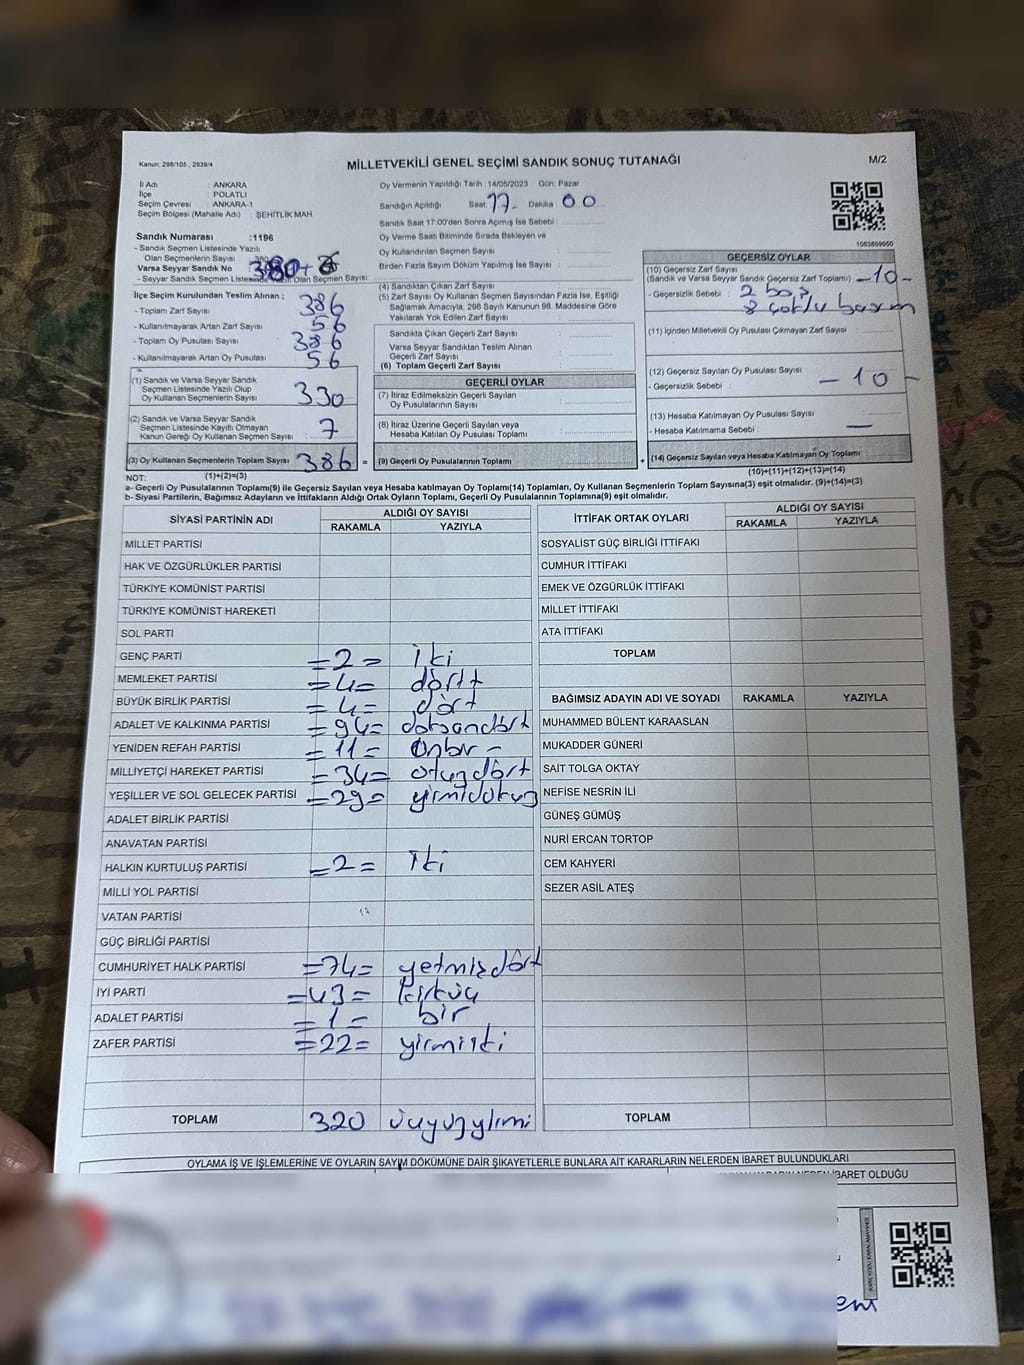 Kanun: 298/105 , 2839/4
MİLLETVEKİLİ GENEL SEÇİMİ SANDIK SONUÇ TUTANAĞI
M/2
İl Adı : ANKARA
İlçe : POLATLI
Seçim Çevresi : ANKARA-1
Seçim Bölgesi (Mahalle Adı) : ŞEHİTLİK MAH.
Oy Vermenin Yapıldığı Tarih :14/05/2023 Gün: Pazar
Sandığın Açıldığı Saat: 17 Dakika : 00
Sandık Saat 17:00'den Sonra Açılmış İse Sebebi :
Oy Verme Saati Bitiminde Sırada Bekleyen ve
Oy Kullandırılan Seçmen Sayısı :
Birden Fazla Sayım Döküm Yapılmış İse Sayısı :
Sandık Numarası :1196
- Sandık Seçmen Listesinde Yazılı
Olan Seçmenlerin Sayısı
Varsa Seyyar Sandık No :
- Seyyar Sandık Seçmen Listesinde Yazılı Olan Seçmen Sayısı:
İlçe Seçim Kurulundan Teslim Alınan ;
- Toplam Zarf Sayısı : 386
- Kullanılmayarak Artan Zarf Sayısı : 56
- Toplam Oy Pusulası Sayısı : 386
- Kullanılmayarak Artan Oy Pusulası : 56
(1) Sandık ve Varsa Seyyar Sandık
Seçmen Listesinde Yazılı Olup
Oy Kullanan Seçmenlerin Sayısı : 330
(2) Sandık ve Varsa Seyyar Sandık
Seçmen Listesinde Kayıtlı Olmayan
Kanun Gereği Oy Kullanan Seçmen Sayısı : 7
(3) Oy Kullanan Seçmenlerin Toplam Sayısı : 386 =
(1)+(2)=(3)
(4) Sandıktan Çıkan Zarf Sayısı :
(5) Zarf Sayısı Oy Kullanan Seçmen Sayısından Fazla İse, Eşitliği
Sağlamak Amacıyla, 298 Sayılı Kanunun 98. Maddesine Göre
Yakılarak Yok Edilen Zarf Sayısı :
Sandıkta Çıkan Geçerli Zarf Sayısı :
Varsa Seyyar Sandıktan Teslim Alınan
Geçerli Zarf Sayısı :
(6) Toplam Geçerli Zarf Sayısı :
GEÇERLİ OYLAR
(7) İtiraz Edilmeksizin Geçerli Sayılan
Oy Pusulalarının Sayısı :
(8) İtiraz Üzerine Geçerli Sayılan veya
Hesaba Katılan Oy Pusulası Toplamı :
(9) Geçerli Oy Pusulalarının Toplamı : +
1083859950
GEÇERSİZ OYLAR
(10) Geçersiz Zarf Sayısı
(Sandık ve Varsa Seyyar Sandık Geçersiz Zarf Toplamı) : -10-
- Geçersizlik Sebebi : 2 boş
8 çoklu basım
(11) İçinden Milletvekili Oy Pusulası Çıkmayan Zarf Sayısı :
(12) Geçersiz Sayılan Oy Pusulası Sayısı : -10-
- Geçersizlik Sebebi :
(13) Hesaba Katılmayan Oy Pusulası Sayısı :
- Hesaba Katılmama Sebebi : —
(14) Geçersiz Sayılan veya Hesaba Katılmayan Oy Toplamı
(10)+(11)+(12)+(13)=(14)
NOT:
a- Geçerli Oy Pusulalarının Toplamı(9) ile Geçersiz Sayılan veya Hesaba katılmayan Oy Toplamı(14) Toplamları, Oy Kullanan Seçmenlerin Toplam Sayısına(3) eşit olmalıdır. (9)+(14)=(3)
b- Siyasi Partilerin, Bağımsız Adayların ve İttifakların Aldığı Ortak Oyların Toplamı, Geçerli Oy Pusulalarının Toplamına(9) eşit olmalıdır.
SİYASİ PARTİNİN ADI ALDIĞI OY SAYISI
RAKAMLA YAZIYLA
MİLLET PARTİSİ
HAK VE ÖZGÜRLÜKLER PARTİSİ
TÜRKİYE KOMÜNİST PARTİSİ
TÜRKİYE KOMÜNİST HAREKETİ
SOL PARTİ
GENÇ PARTİ =2= iki
MEMLEKET PARTİSİ =4= dört
BÜYÜK BİRLİK PARTİSİ =4= dört
ADALET VE KALKINMA PARTİSİ =94= doksandört
YENİDEN REFAH PARTİSİ =11= Onbir -
MİLLİYETÇİ HAREKET PARTİSİ =34= otuzdört
YEŞİLLER VE SOL GELECEK PARTİSİ =29= yirmidokuz
ADALET BİRLİK PARTİSİ
ANAVATAN PARTİSİ
HALKIN KURTULUŞ PARTİSİ =2= iki
MİLLİ YOL PARTİSİ
VATAN PARTİSİ
GÜÇ BİRLİĞİ PARTİSİ
CUMHURİYET HALK PARTİSİ =74= yetmişdört
İYİ PARTİ =43= kırküç
ADALET PARTİSİ =1= bir
ZAFER PARTİSİ =22= yirmiiki
TOPLAM 320 üçyüzyirmi
İTTİFAK ORTAK OYLARI ALDIĞI OY SAYISI
RAKAMLA YAZIYLA
SOSYALİST GÜÇ BİRLİĞİ İTTİFAKI
CUMHUR İTTİFAKI
EMEK VE ÖZGÜRLÜK İTTİFAKI
MİLLET İTTİFAKI
ATA İTTİFAKI
TOPLAM
BAĞIMSIZ ADAYIN ADI VE SOYADI RAKAMLA YAZIYLA
MUHAMMED BÜLENT KARAASLAN
MUKADDER GÜNERİ
SAİT TOLGA OKTAY
NEFİSE NESRİN İLİ
GÜNEŞ GÜMÜŞ
NURİ ERCAN TORTOP
CEM KAHYERİ
SEZER ASİL ATEŞ
TOPLAM
OYLAMA İŞ VE İŞLEMLERİNE VE OYLARIN SAYIM DÖKÜMÜNE DAİR ŞİKAYETLERLE BUNLARA AİT KARARLARIN NELERDEN İBARET BULUNDUKLARI
İBARET OLDUĞU